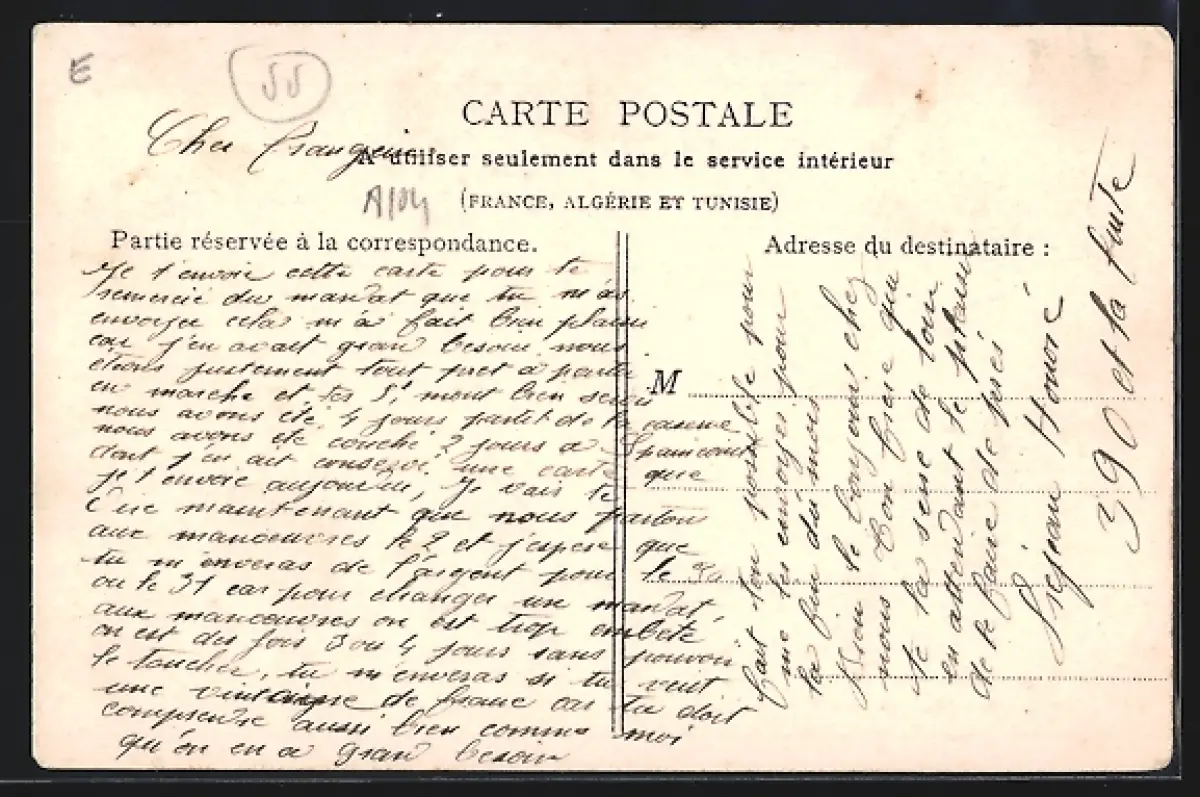 E
55
CARTE POSTALE
Cher
A utiliser seulement dans le service intérieur
A104
(FRANCE, ALGÉRIE ET TUNISIE)
Partie réservée à la correspondance.
Adresse du destinataire :
M
Je t'envoie cette carte pour te
remercié du mandat que tu m'as
envoyer cela m'a fait bien plaisir
car j'en avait gran besoin nous
étions justement tout pret a partir
en marche et tes 5f mont bien servi
nous avons été 4 jours partit de la caserne
nous avons été couché 2 jours a Spincourt
dont j'en ait une carte que
je t'envoie aujourdui, Je vais te
dire maintenant que nous parton
aux manoeuvres le 2 et j'espère que
tu m'enveras de l'argent pour le 30
ou le 31 car pour changer un mandat
aux manoeuvres on est trop embeté
on est des fois 3 ou 4 jours sans pouvoir
le toucher, tu m'enveras si tu veut
une vintaine de franc car tu doit
comprendre aussi bien comme moi
qu'on en a gran besoin
fait ton possible pour
me les envoyes pour
la fin du mois
Rien le bonjour chez
nous ton frère qui
te la sere de loin
en attendant le plaisir
de le faire de près
Honoré
390 et la fuite